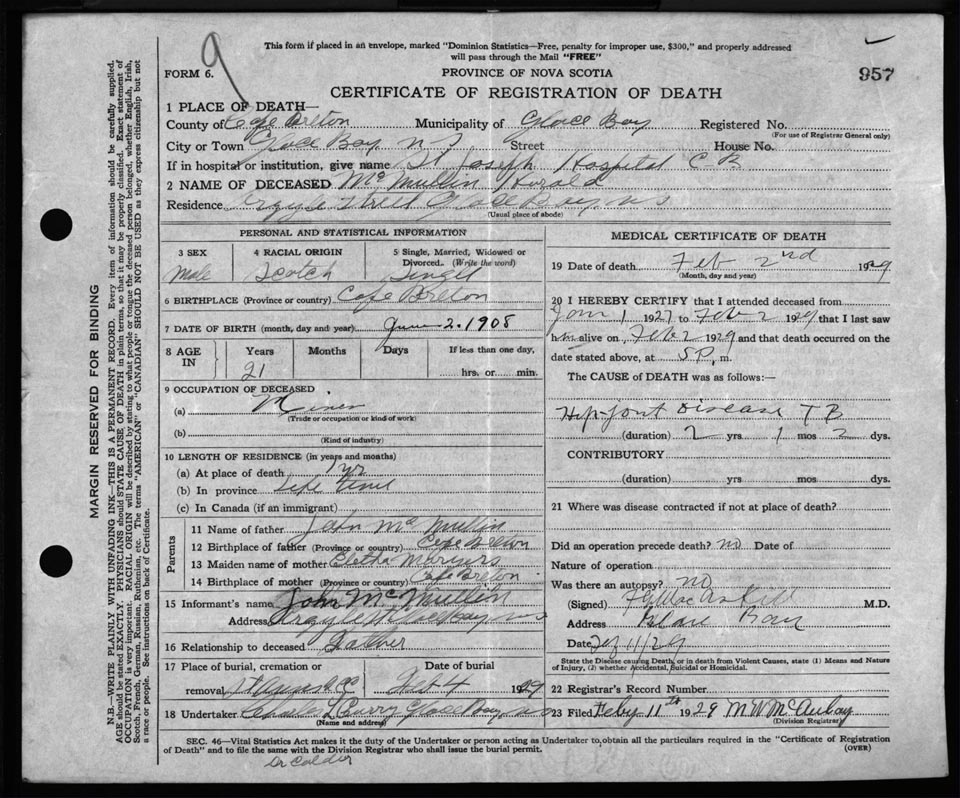 9
This form if placed in an envelope, marked "Dominion Statistics—Free, penalty for improper use, $300," and properly addressed
will pass through the Mail "FREE"
FORM 6.
PROVINCE OF NOVA SCOTIA
957
CERTIFICATE OF REGISTRATION OF DEATH
MARGIN RESERVED FOR BINDING
N.B.—WRITE PLAINLY WITH UNFADING INK—THIS IS A PERMANENT RECORD. Every item of information should be carefully supplied.
AGE should be stated EXACTLY. PHYSICIANS should STATE CAUSE OF DEATH in plain terms, so that it may be properly classified. Exact statement of
OCCUPATION is very important. RACIAL ORIGIN will be described by stating to what people or tongue the deceased person belonged, whether English, Irish,
Scotch, French, German, Russian, Ruthenian, etc. The terms "AMERICAN" or "CANADIAN" SHOULD NOT BE USED as they express citizenship but not
a race or people. See instructions on back of Certificate.
1 PLACE OF DEATH—
County of Cape Breton Municipality of Glace Bay Registered No.
(For use of Registrar General only)
City or Town Glace Bay N S Street House No.
If in hospital or institution, give name St Joseph Hospital C B
2 NAME OF DECEASED McMullin
Residence Argyle Street Glace Bay, N S
(Usual place of abode)
PERSONAL AND STATISTICAL INFORMATION
3 SEX
Male
4 RACIAL ORIGIN
Scotch
5 Single, Married, Widowed or
Divorced. (Write the word)
Single
6 BIRTHPLACE (Province or country) Cape Breton
7 DATE OF BIRTH (month, day and year) 2. 1908
8 AGE IN
Years
21
Months
Days
If less than one day,
hrs. or min.
9 OCCUPATION OF DECEASED
(a) Miner
(Trade or occupation or kind of work)
(b)
(Kind of industry)
10 LENGTH OF RESIDENCE (in years and months)
(a) At place of death 1 yr
(b) In province Life time
(c) In Canada (if an immigrant)
Parents
11 Name of father John McMullin
12 Birthplace of father (Province or country) Cape Breton
13 Maiden name of mother
14 Birthplace of mother (Province or country) Cape Breton
15 Informant's name John McMullin
Address Argyle
16 Relationship to deceased Father
17 Place of burial, cremation or
removal
Date of burial
Feb 4 1929
18 Undertaker Charles L Curry Glace Bay, N S
(Name and address)
MEDICAL CERTIFICATE OF DEATH
19 Date of death Feb 2nd 1929
(Month, day and year)
20 I HEREBY CERTIFY that I attended deceased from
Jan 1 1927 to Feb 2 1929 that I last saw
him alive on, Feb 2 1929 and that death occurred on the
date stated above, at 5 P. m.
The CAUSE of DEATH was as follows:—
Hip-Joint Disease T B
(duration) 2 yrs 1 mos 2 dys.
CONTRIBUTORY
(duration) yrs. mos. dys.
21 Where was disease contracted if not at place of death?
Did an operation precede death? no Date of
Nature of operation
Was there an autopsy? no
(Signed) M.D.
Address Glace Bay
Date Feb 11/29
State the Disease causing Death, or in death from Violent Causes, state (1) Means and Nature
of Injury, (2) whether Accidental, Suicidal or Homicidal.
22 Registrar's Record Number
23 Filed Feby 11th 1929 M W McAulay
(Division Registrar)
SEC. 46—Vital Statistics Act makes it the duty of the Undertaker or person acting as Undertaker to obtain all the particulars required in the "Certificate of Registration
of Death" and to file the same with the Division Registrar who shall issue the burial permit.
(OVER)